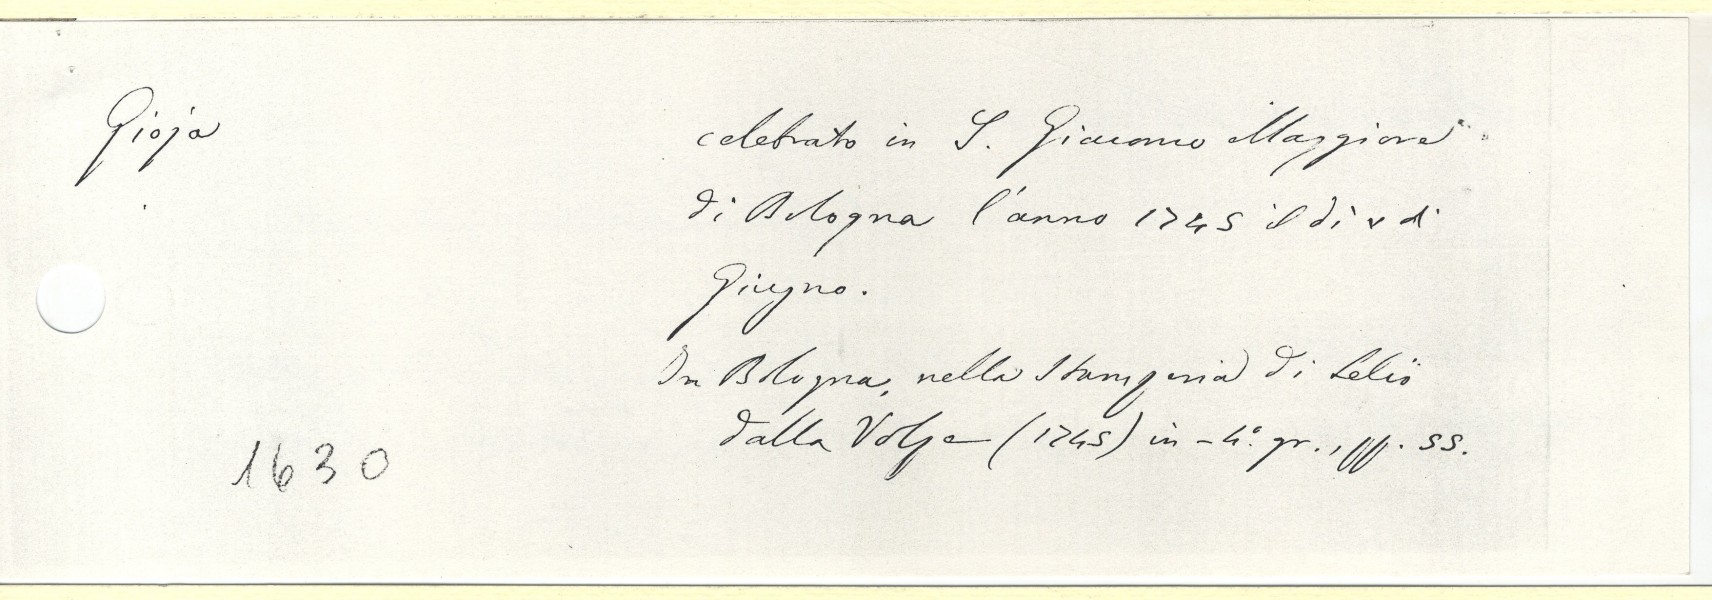 Gioja
celebrato in S. Giacomo Maggiore
di Bologna l'anno 1745 il dì v di
Giugno.
In Bologna, nella Stamperia di Lelio
dalla Volpe (1745) in-4º. gr., pp. 55.
1630